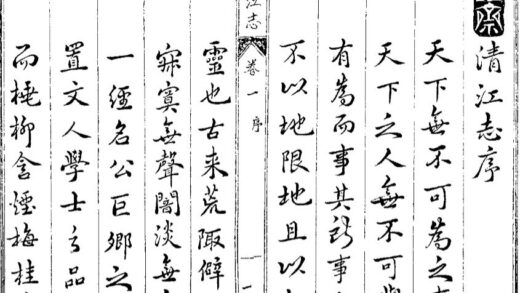 清江志序
天下無不可為之
天下之人無不可
有為而事其所事
不以地限地且以
江志
卷一
序
一
靈也古来荒陬僻
寂寞無聲闇淡無
一經名公巨鄉之
置文人學士之品
而桃柳含煙梅桂